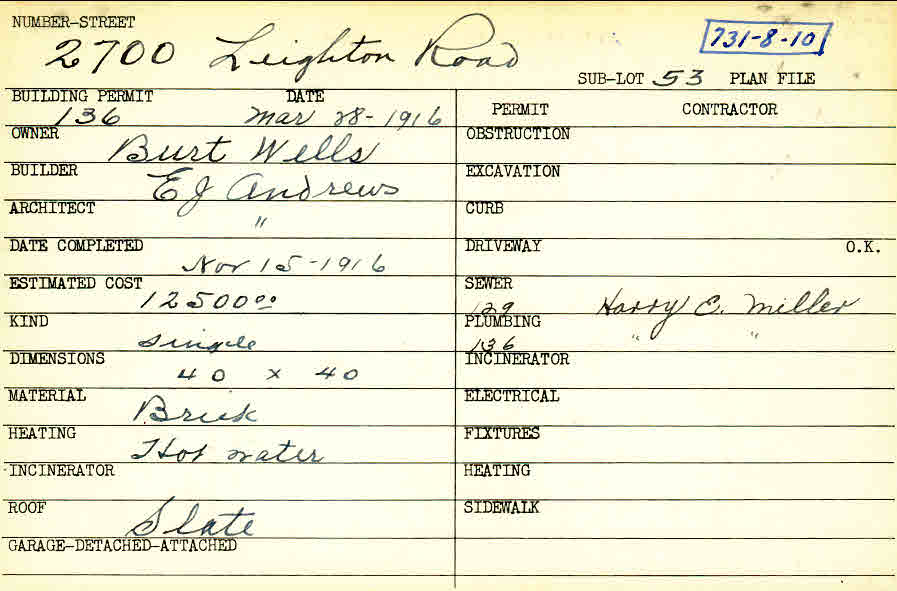 NUMBER-STREET
2700 Leighton Road
731-8-10
SUB-LOT 53 PLAN FILE
BUILDING PERMIT DATE
136 Mar 28-1916
OWNER
Burt Wells
BUILDER
EJ Andrews
ARCHITECT
"
DATE COMPLETED
Nov 15-1916
ESTIMATED COST
12500.00
KIND
Single
DIMENSIONS
40 x 40
MATERIAL
Brick
HEATING
Hot water
INCINERATOR
ROOF
Slate
GARAGE-DETACHED-ATTACHED
PERMIT CONTRACTOR
OBSTRUCTION
EXCAVATION
CURB
DRIVEWAY O.K.
SEWER
129 Harry E. Miller
PLUMBING
136 " "
INCINERATOR
ELECTRICAL
FIXTURES
HEATING
SIDEWALK